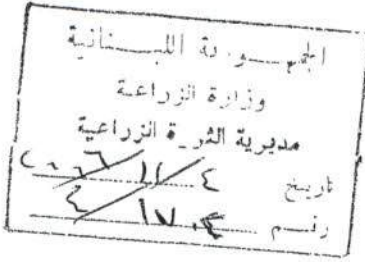 الجمهورية اللبنانية
وزارة الزراعة
مديرية الثروة الزراعية
تاريخ ٤/١١/٢٠٠٦
رقم